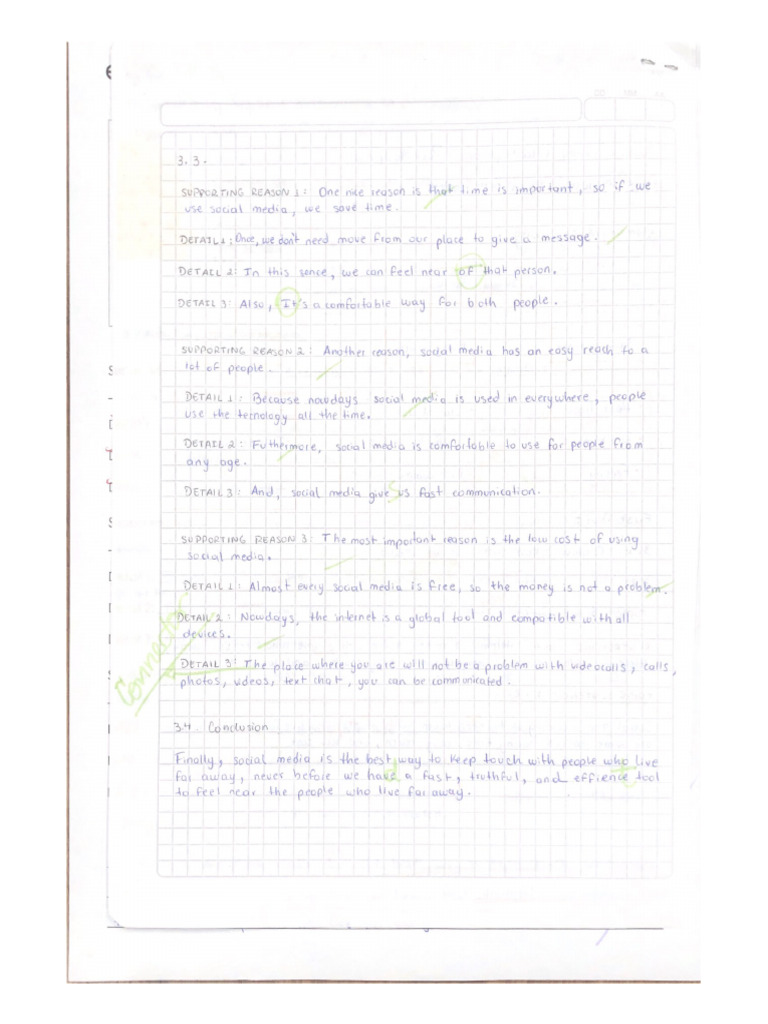 3.3.
SUPPORTING REASON 1: One nice reason is that time is important, so if we
use social media, we save time.
DETAIL 1: Once, we don't need move from our place to give a message.
DETAIL 2: In this sence, we can feel near of that person.
DETAIL 3: Also, It's a comfortable way for both people.
SUPPORTING REASON 2: Another reason, social media has an easy reach to a
lot of people.
DETAIL 1: Because nowdays social media is used in everywhere, people
use the tecnology all the time.
DETAIL 2: Futhermore, social media is comfortable to use for people from
any age.
DETAIL 3: And, social media gives us fast communication.
SUPPORTING REASON 3: The most important reason is the low cost of using
social media.
DETAIL 1: Almost every social media is free, so the money is not a problem.
DETAIL 2: Nowdays, the internet is a global tool and compatible with all
devices.
Connector
DETAIL 3: The place where you are will not be a problem with videocalls, calls,
photos, videos, text chat, you can be communicated.
3.4. Conclusion
Finally, social media is the best way to keep touch with people who live
far away, never before we had a fast, truthful, and effience tool
to feel near the people who live far away.